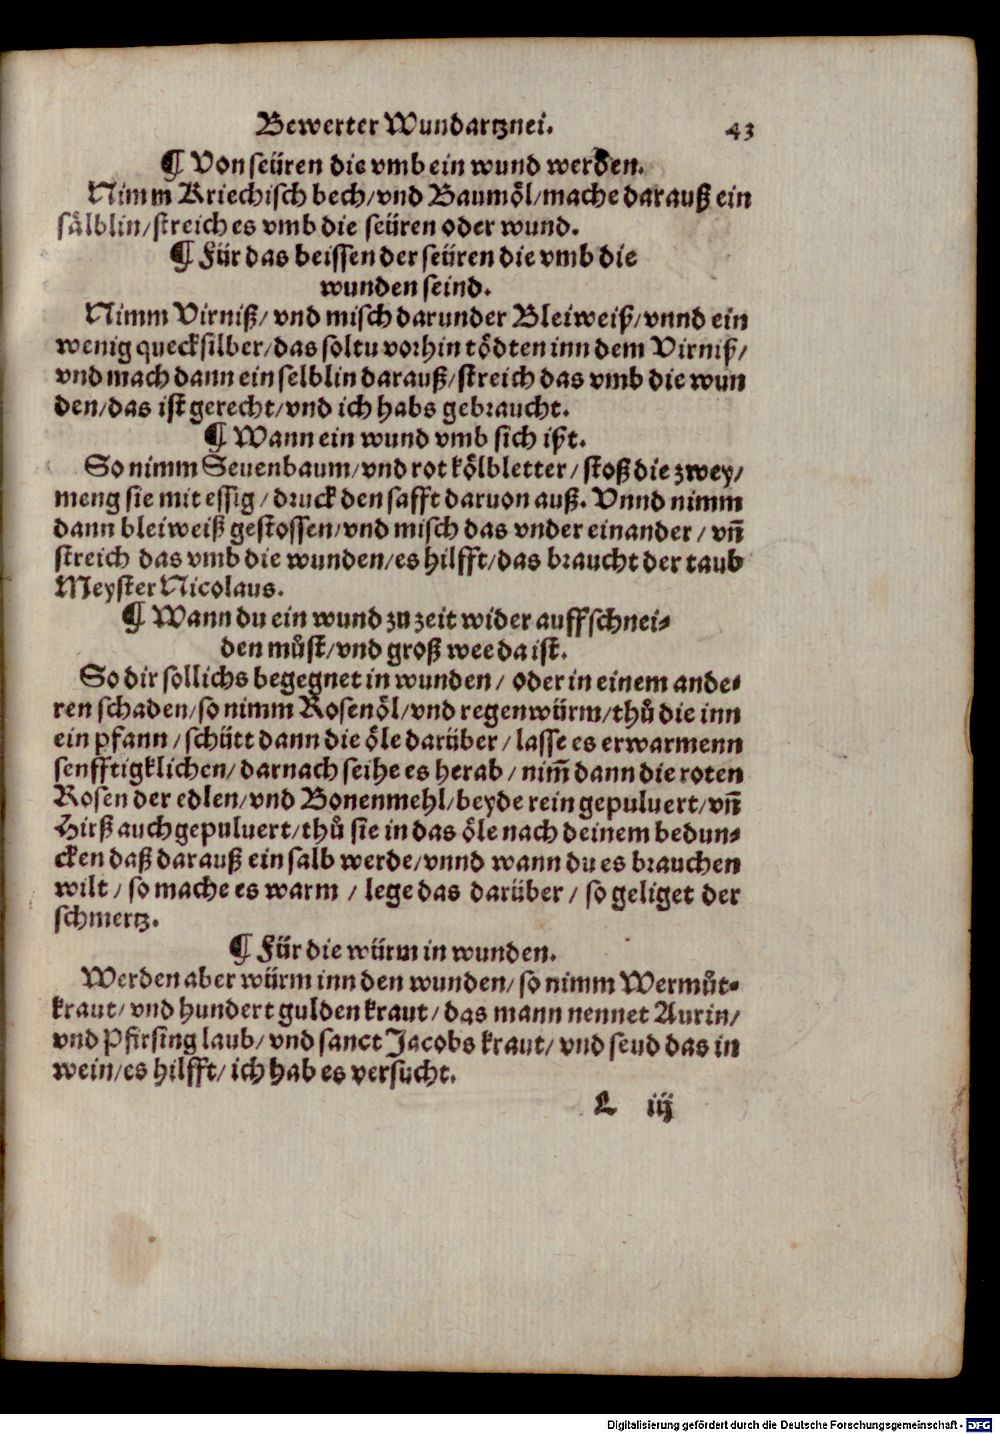 Bewerter Wundartznei. 43
¶ Von seüren die vmb ein wund werden.
Nimm Kriechisch bech/vnd Baumöl/mache darauß ein
sälblin/streich es vmb die seüren oder wund.
¶ Für das beissen der seüren die vmb die
wunden seind.
Nimm Virniß/ vnd misch darunder Bleiweiß/vnnd ein
wenig quecksilber/das soltu vorhin tödten inn dem Virniß/
vnd mach dann ein selblin darauß/streich das vmb die wun
den/das ist gerecht/vnd ich habs gebraucht.
¶ Wann ein wund vmb sich ißt.
So nimm Seuenbaum/vnd rot kölbletter/ stoß die zwey/
meng sie mit essig/ druck den safft daruon auß. Vnnd nimm
dann bleiweiß gestossen/vnd misch das vnder einander/ vñ
streich das vmb die wunden/es hilfft/das braucht der taub
Meyster Nicolaus.
¶ Wann du ein wund zu zeit wider auffschnei⸗
den můst/vnd groß wee da ist.
So dir sollichs begegnet in wunden/ oder in einem ande⸗
ren schaden/so nimm Rosenöl/vnd regenwürm/thů die inn
ein pfann/schütt dann die öle darüber/ lasse es erwarmenn
senfftigklichen/ darnach seihe es herab/ nim̃ dann die roten
Rosen der edlen/vnd Bonenmehl/beyde rein gepuluert/vñ
Hirß auch gepuluert/thů sie in das öle nach deinem bedun⸗
cken daß darauß ein salb werde/vnnd wann du es brauchen
wilt/ so mache es warm/ lege das darüber/ so geliget der
schmertz.
¶ Für die würm in wunden.
Werden aber würm inn den wunden/ so nimm Wermůt⸗
kraut/ vnd hundert gulden kraut/ das mann nennet Aurin/
vnd Pfirsing laub/ vnd sanct Jacobs kraut/ vnd seud das in
wein/es hilfft/ ich hab es versucht.
L iij
Digitalisierung gefördert durch die Deutsche Forschungsgemeinschaft - DFG